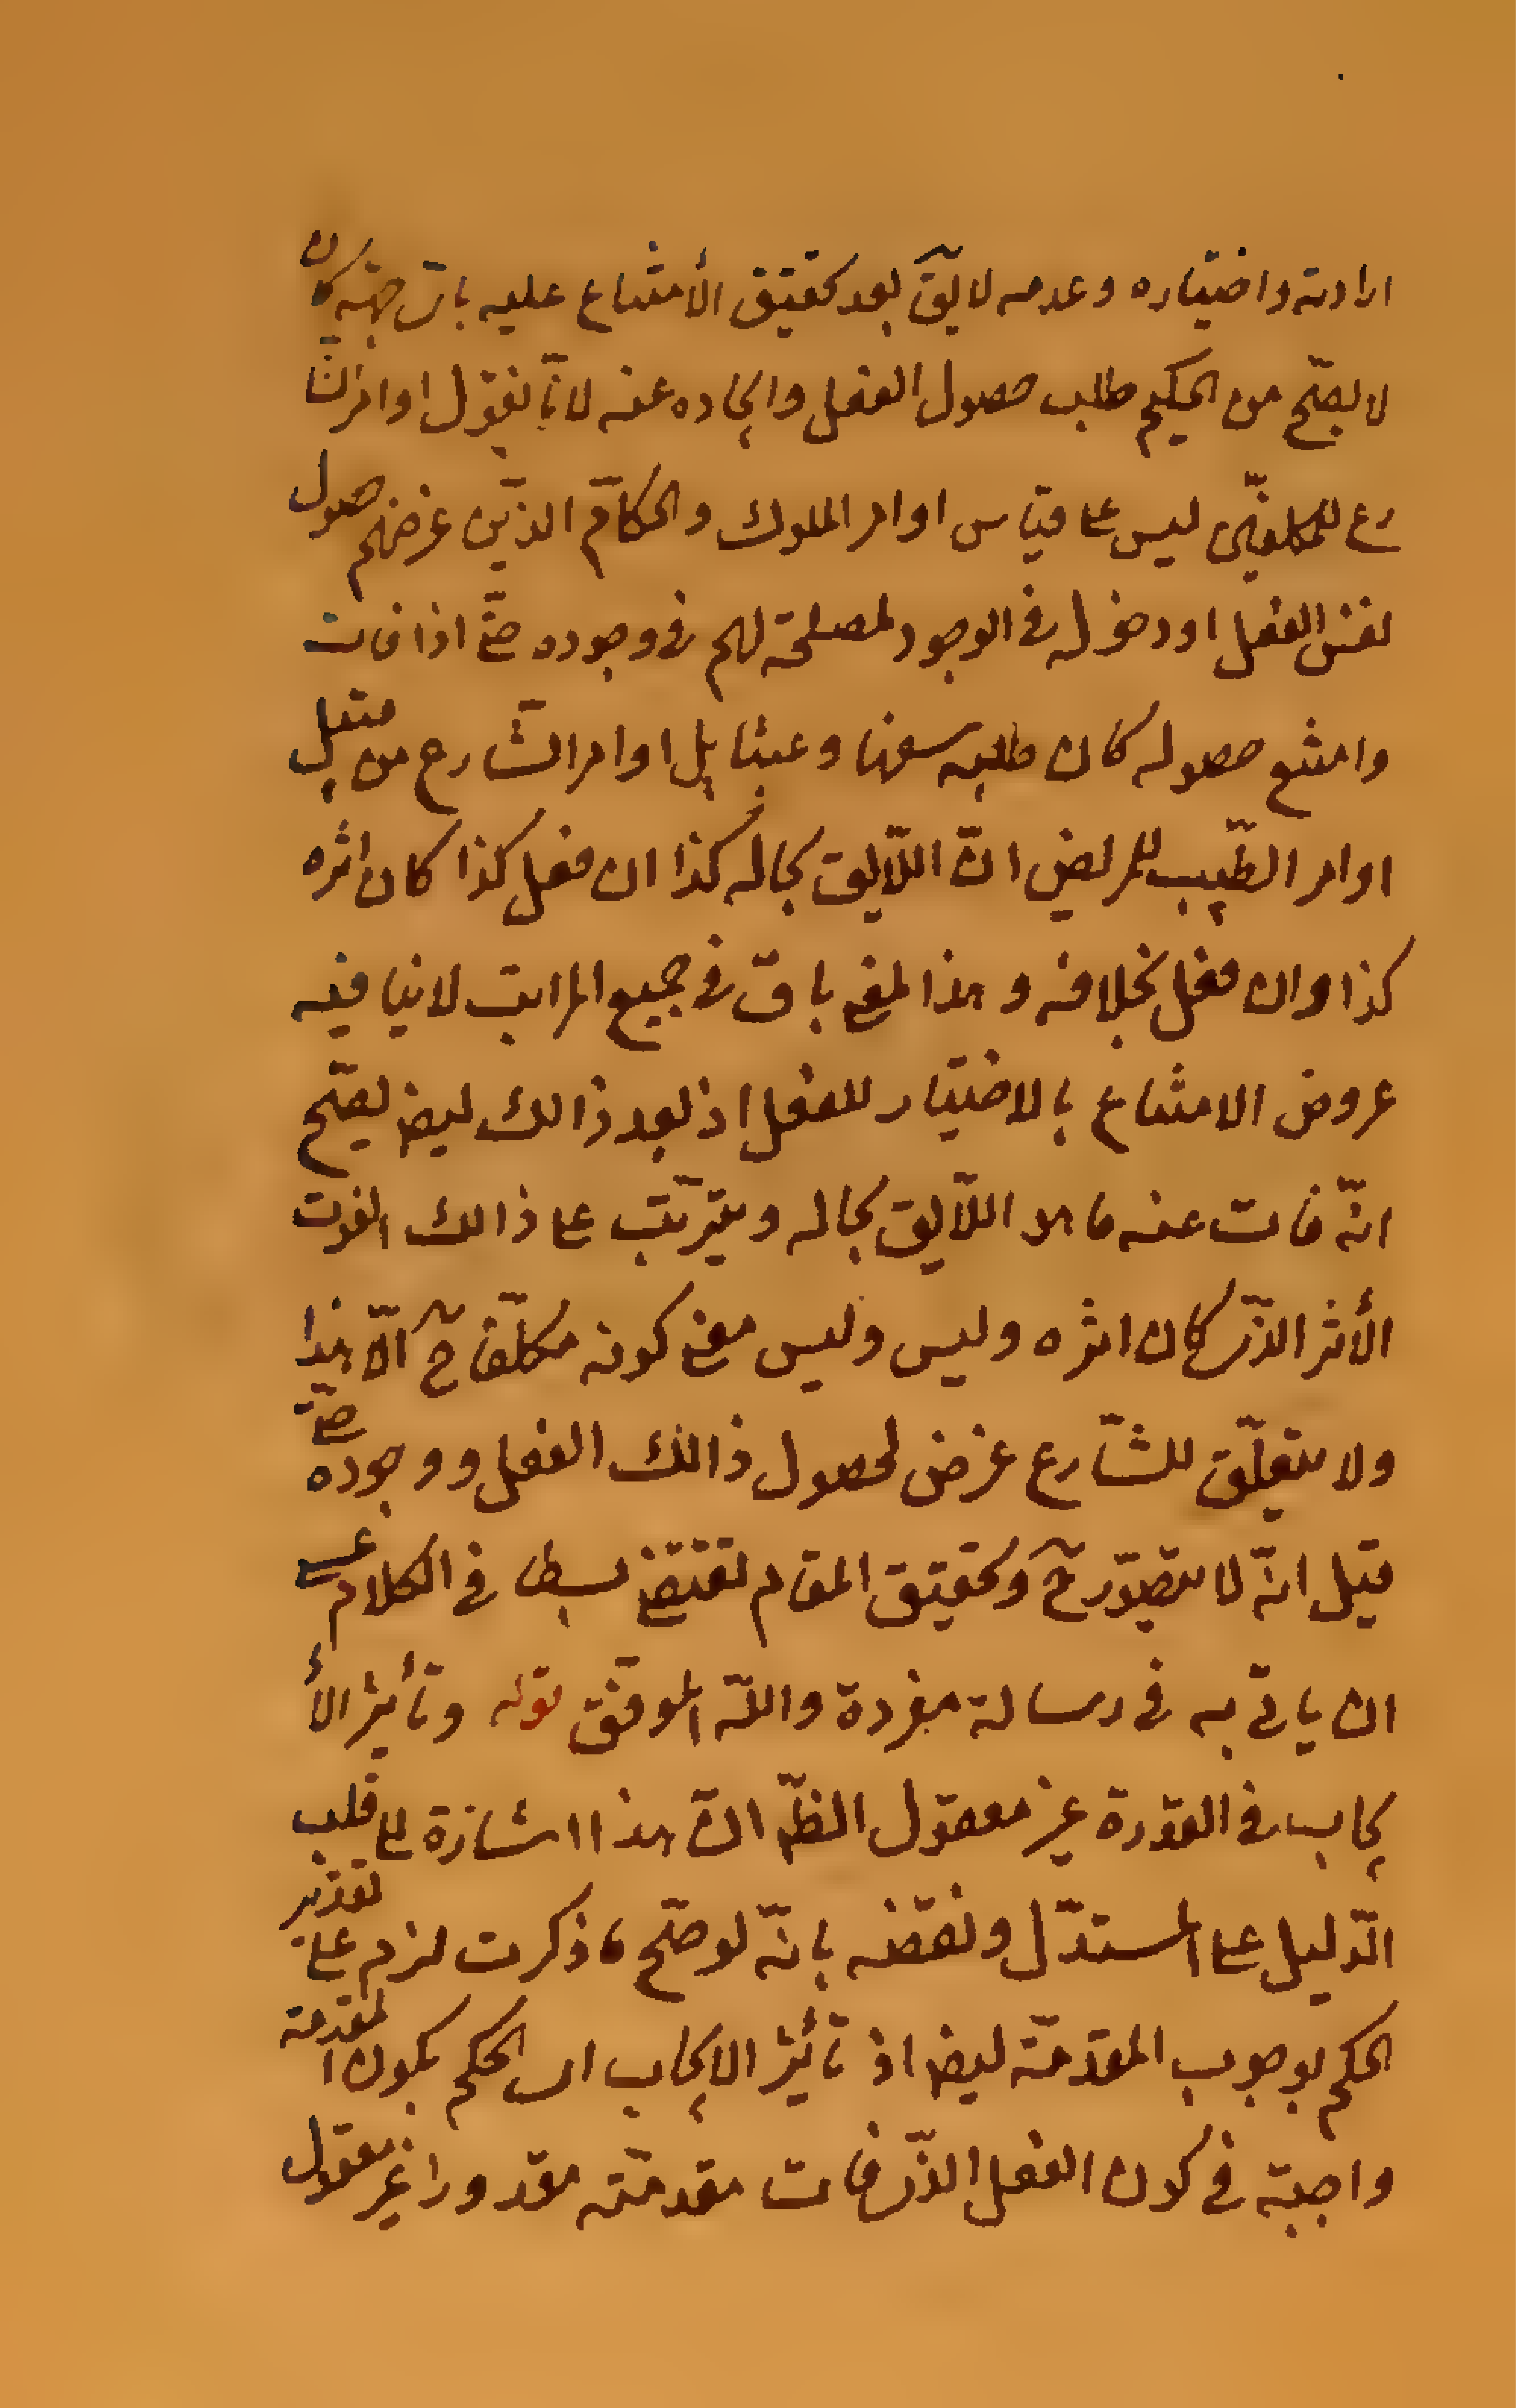 ارادته واختياره وعدمه لا يقّ بعد تحقيق الأمتناع عليه باىّ جهة كان
لا يصّح من الحكيم طلب حصول الفعل وايجاده عنه لأنّا نقول اوامر الشّا
رع للمكلفّين ليس على قياس اوامر الملوك والحكاّم الذّين غرضهم حصول
نفس الفعل او دخوله في الوجود لمصلحة لهم في وجوده حتّى اذا فات
وامتنع حصوله كان طلبه سفها وعبثا بل اوامر الشّارع من قبيل
اوامر الطّبيب للمريض انّ اللّايق بحاله كذا ان فعل كذا كان اثره
كذا وان فعل بخلافه وهذا لمعنى باق في جميع المراتب لا ينافيه
عروض الامتناع بالاختيار للفعل اذ بعد ذالك ايضا يصّح
انّه فات عنه ما هو اللّايق بحاله ويترتّب على ذالك الفوت
الأثر الذّى كان اثره وليس وليس معنى كونه مكلّفا ح الّا هذا
ولا يتعلّق للشّارع غرض لحصول ذالك الفعل ووجوده حتّى
قيل انّه لا يتصّور ح وتحقيق المقام يقتضى بسطا في الكلام عسى
ان ياتى به في رسالة مفردة واللّه الموفّق قوله وتأثير الأ
يجاب في القدرة غير معقول الظّ انّ هذا اشارة الى قلب
الدّليل على المستدّل ونقضه بانّه لو صّح ما ذكرت لزم على تقدير
الحكم بوجوب المقدمّة ايضا اذ تأثير الايجاب اى الحكم بكون المقدمة
واجبة في كون الفعل الذّى فات مقدمّته مقدورا غير معقول